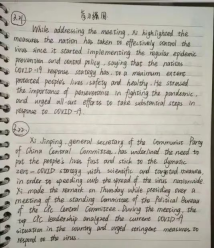 While addressing the meeting, Xi highlighted the
measures the nation has taken to effectively control the
virus since it started implementing the regular epidemic
prevention and control policy, saying that the nation
COVID-19 response strategy has, to a maximum extent
protected people's lives, safety and health. He stressed
the importance of perseverance in fighting the pandemic
and urged all-out efforts to take substantial steps in
response to COVID-19.
Xi Jinping, general secretary of the Communist Party
of China Central Committee, has underlined the need to
put the people's lives first and stick to the dynamic
zero-COVID strategy with scientific and targeted measures,
in order to speedily curb the spread of the virus
Xi made the remark on Thursday while presiding over a
meeting of the Standing Committee of the Political Bureau
of the CPC Central Committee. During the meeting, the
top CPC leadership analyzed the current COVID-19
situation in the country and urged stringent measures to
respond to the virus.